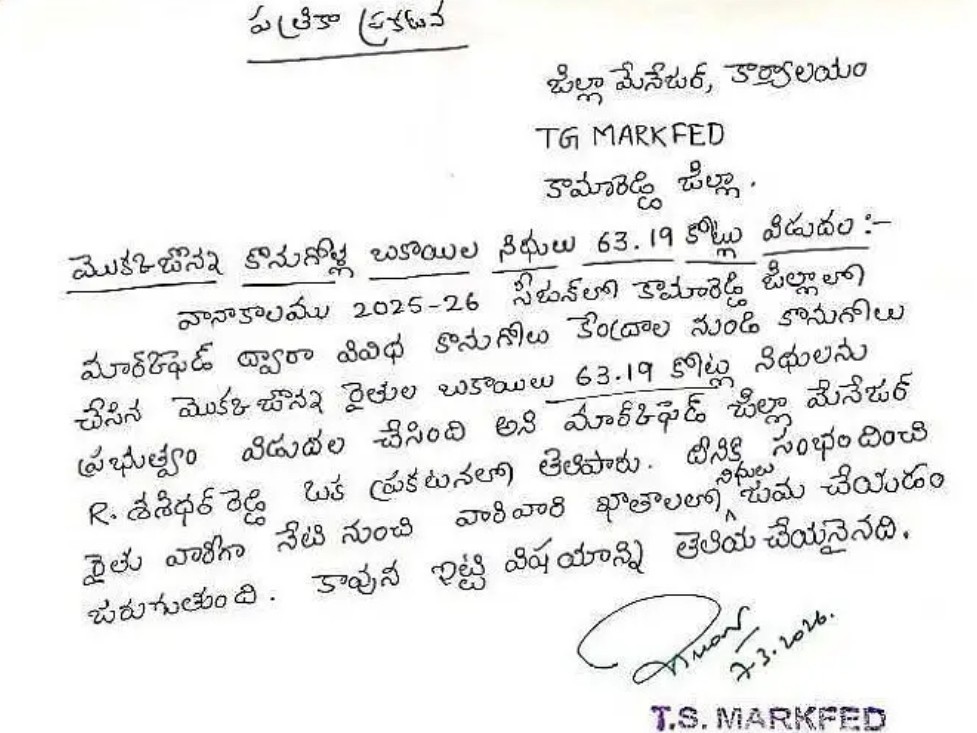 పత్రికా ప్రకటన
జిల్లా మేనేజర్, కార్యాలయం
TG MARKFED
కామారెడ్డి జిల్లా.
మొకఒజొన్న కొనుగోళ్ల బకాయిల నిధులు 63.19 కోట్లు విడుదల :-
వానాకాలము 2025-26 సీజన్‌లో కామారెడ్డి జిల్లాలో
మార్క్‌ఫెడ్ ద్వారా వివిధ కొనుగోలు కేంద్రాల నుండి కొనుగోలు
చేసిన మొకఒజొన్న రైతుల బకాయిలు 63.19 కోట్ల నిధులను
ప్రభుత్వం విడుదల చేసింది అని మార్క్‌ఫెడ్ జిల్లా మేనేజర్
R. శశిధర్ రెడ్డి ఒక ప్రకటనలో తెలిపారు. దీనికి సంభందించి
రైతు వారీగా నేటి నుంచి వారివారి ఖాతాలలో నిధులు జమ చేయడం
జరుగుతుంది. కావున ఇట్టి విషయాన్ని తెలియ చేయనైనది.
7-3-2026.
T.S. MARKFED